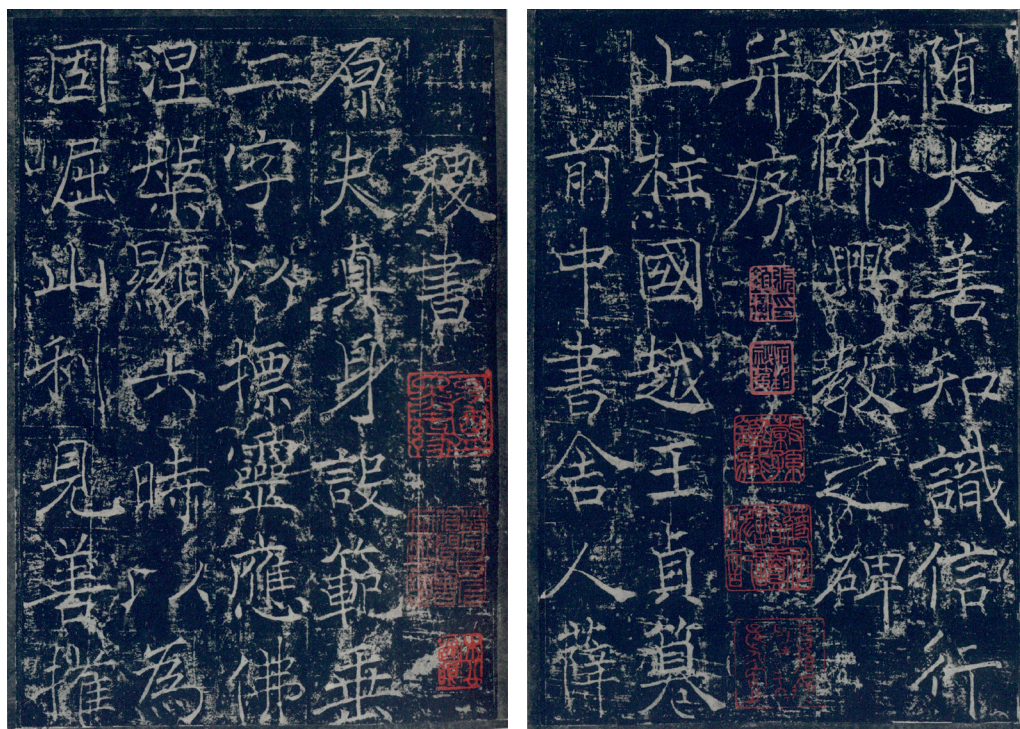 随大善知識信行
禪師興教之碑
并序
上柱國越王貞篹
前中書舍人薛
稷書
原夫真身設範垂
二字以摽靈應佛
涅槃顯六時以為
固崛山利見善權